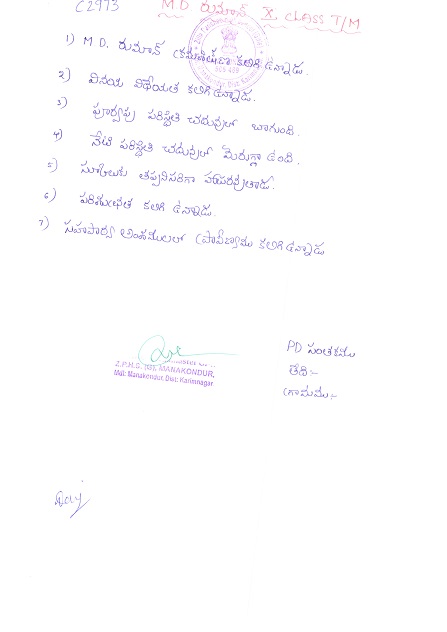 C2973
MD రుమాన్ X CLASS T/M
1) MD. రుమాన్ క్రమశిక్షణ కలిగి ఉన్నాడు.
2) వినయ విధేయత కలిగి ఉన్నాడు.
3) పూర్వపు పరిస్థితి చదువులో బాగుంది.
4) నేటి పరిస్థితి చదువులో మెరుగ్గా ఉంది.
5) స్కూలుకు తప్పనిసరిగా హాజరవుతాడు.
6) పరిశుభ్రత కలిగి ఉన్నాడు.
7) సహపాఠ్య అంశములలో ప్రావీణ్యము కలిగి ఉన్నాడు
Z.P.H.S. MANAKONDUR,
Mdl: Manakondur, Dist: Karimnagar
PD సంతకము
తేది:-
గ్రామము:-